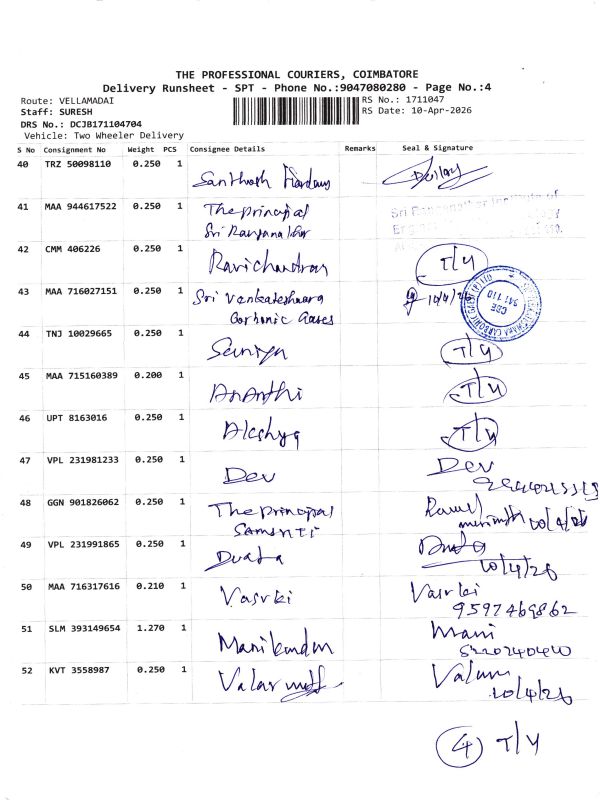 THE PROFESSIONAL COURIERS, COIMBATORE
Delivery Runsheet - SPT - Phone No.:9047080280 - Page No.:4
Route: VELLAMADAI
RS No.: 1711047
Staff: SURESH
RS Date: 10-Apr-2026
DRS No.: DCJB171104704
Vehicle: Two Wheeler Delivery
S No Consignment No Weight PCS Consignee Details Remarks Seal & Signature
40 TRZ 50098110 0.250 1
Santhosh
41 MAA 944617522 0.250 1 The principal
Sri Ranganathar
Sri Ranganathar Institute of
42 CMM 406226 0.250 1
Ravichandran T/Y
43 MAA 716027151 0.250 1 Sri Venkateshwara 10/4/26
Carbonic Gases
CBE
641 110
44 TNJ 10029665 0.250 1
Saniya T/Y
45 MAA 715160389 0.200 1
Ananthi T/Y
46 UPT 8163016 0.250 1
Akshya T/Y
47 VPL 231981233 0.250 1
Dev Dev
48 GGN 901826062 0.250 1 The principal
10/4/26
49 VPL 231991865 0.250 1
10/4/26
50 MAA 716317616 0.210 1
Vasuki Vasuki
9597469862
51 SLM 393149654 1.270 1
Manikandan Mani
52 KVT 3558987 0.250 1
10/4/26
4 T/Y